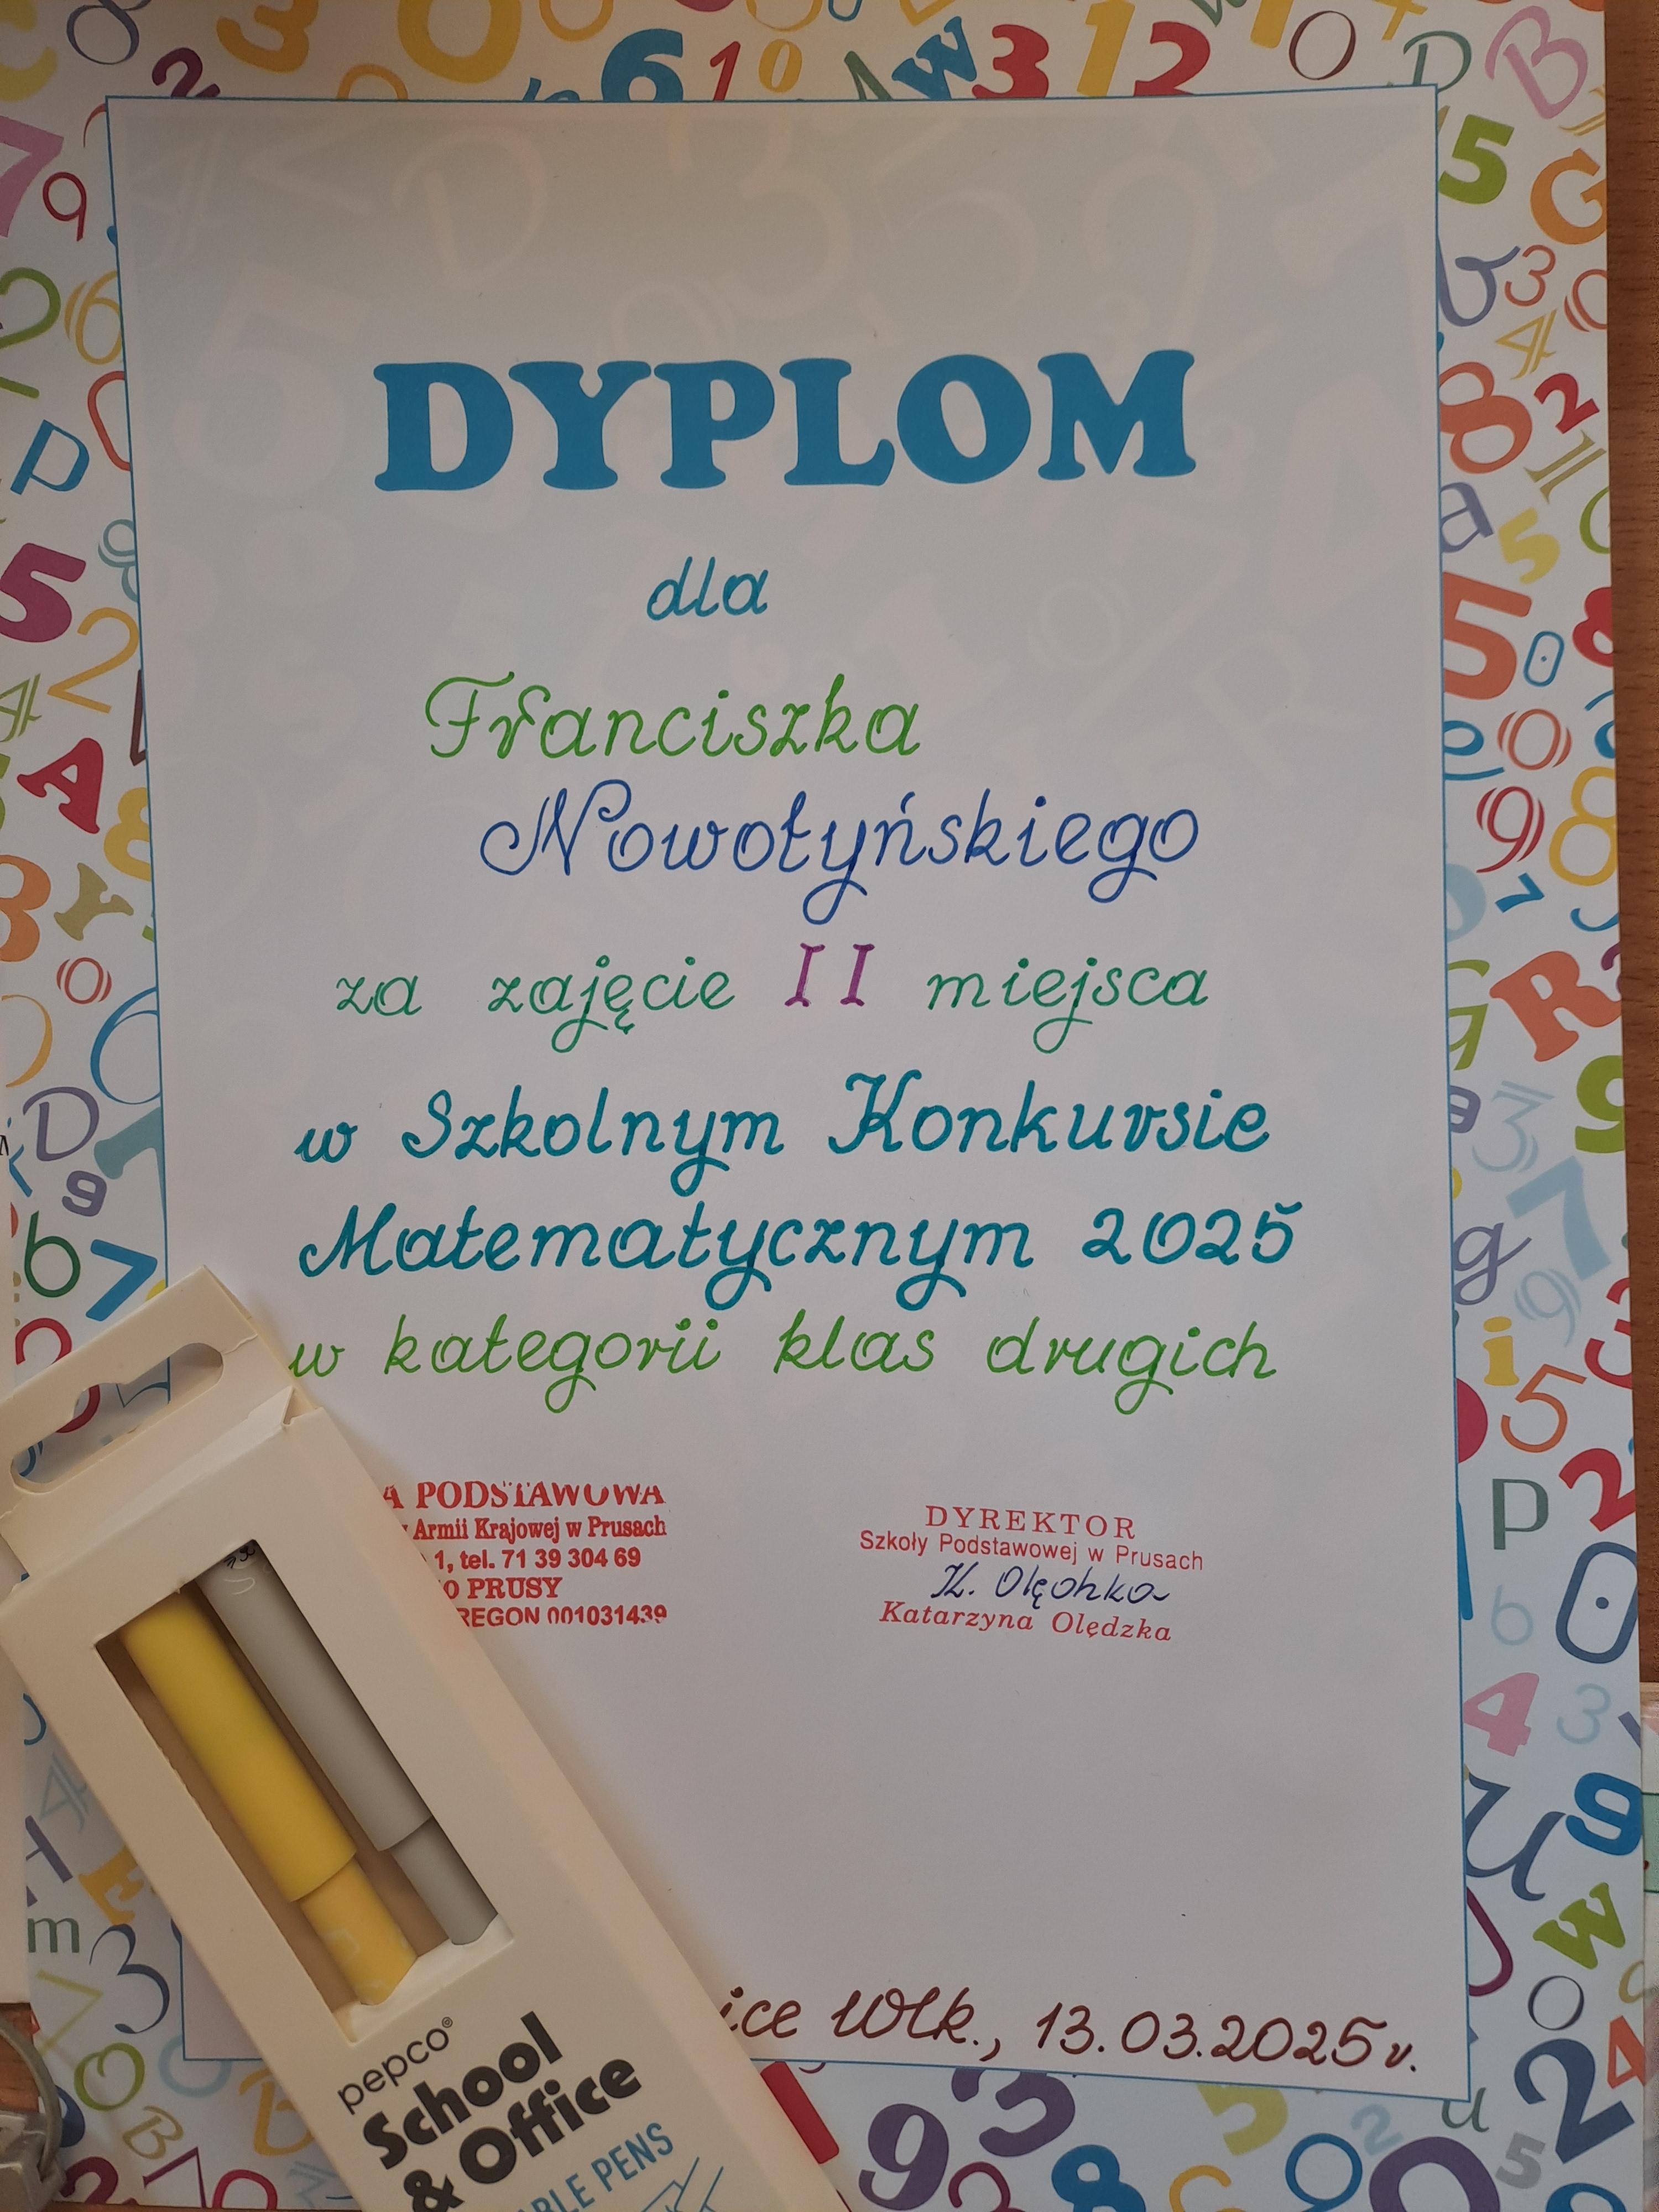 DYPLOM
dla
Franciszka
Nowotyńskiego
za zajęcie II miejsca
w Szkolnym Konkursie
Matematycznym 2025
w kategorii klas drugich
A PODSTAWOWA
Armii Krajowej w Prusach
1, tel. 71 39 304 69
O PRUSY
REGON 001031439
DYREKTOR
Szkoły Podstawowej w Prusach
K. Olędzka
Katarzyna Olędzka
ice Wlk., 13.03.2025 r.
pepco®
School
& Office
BLE PENS